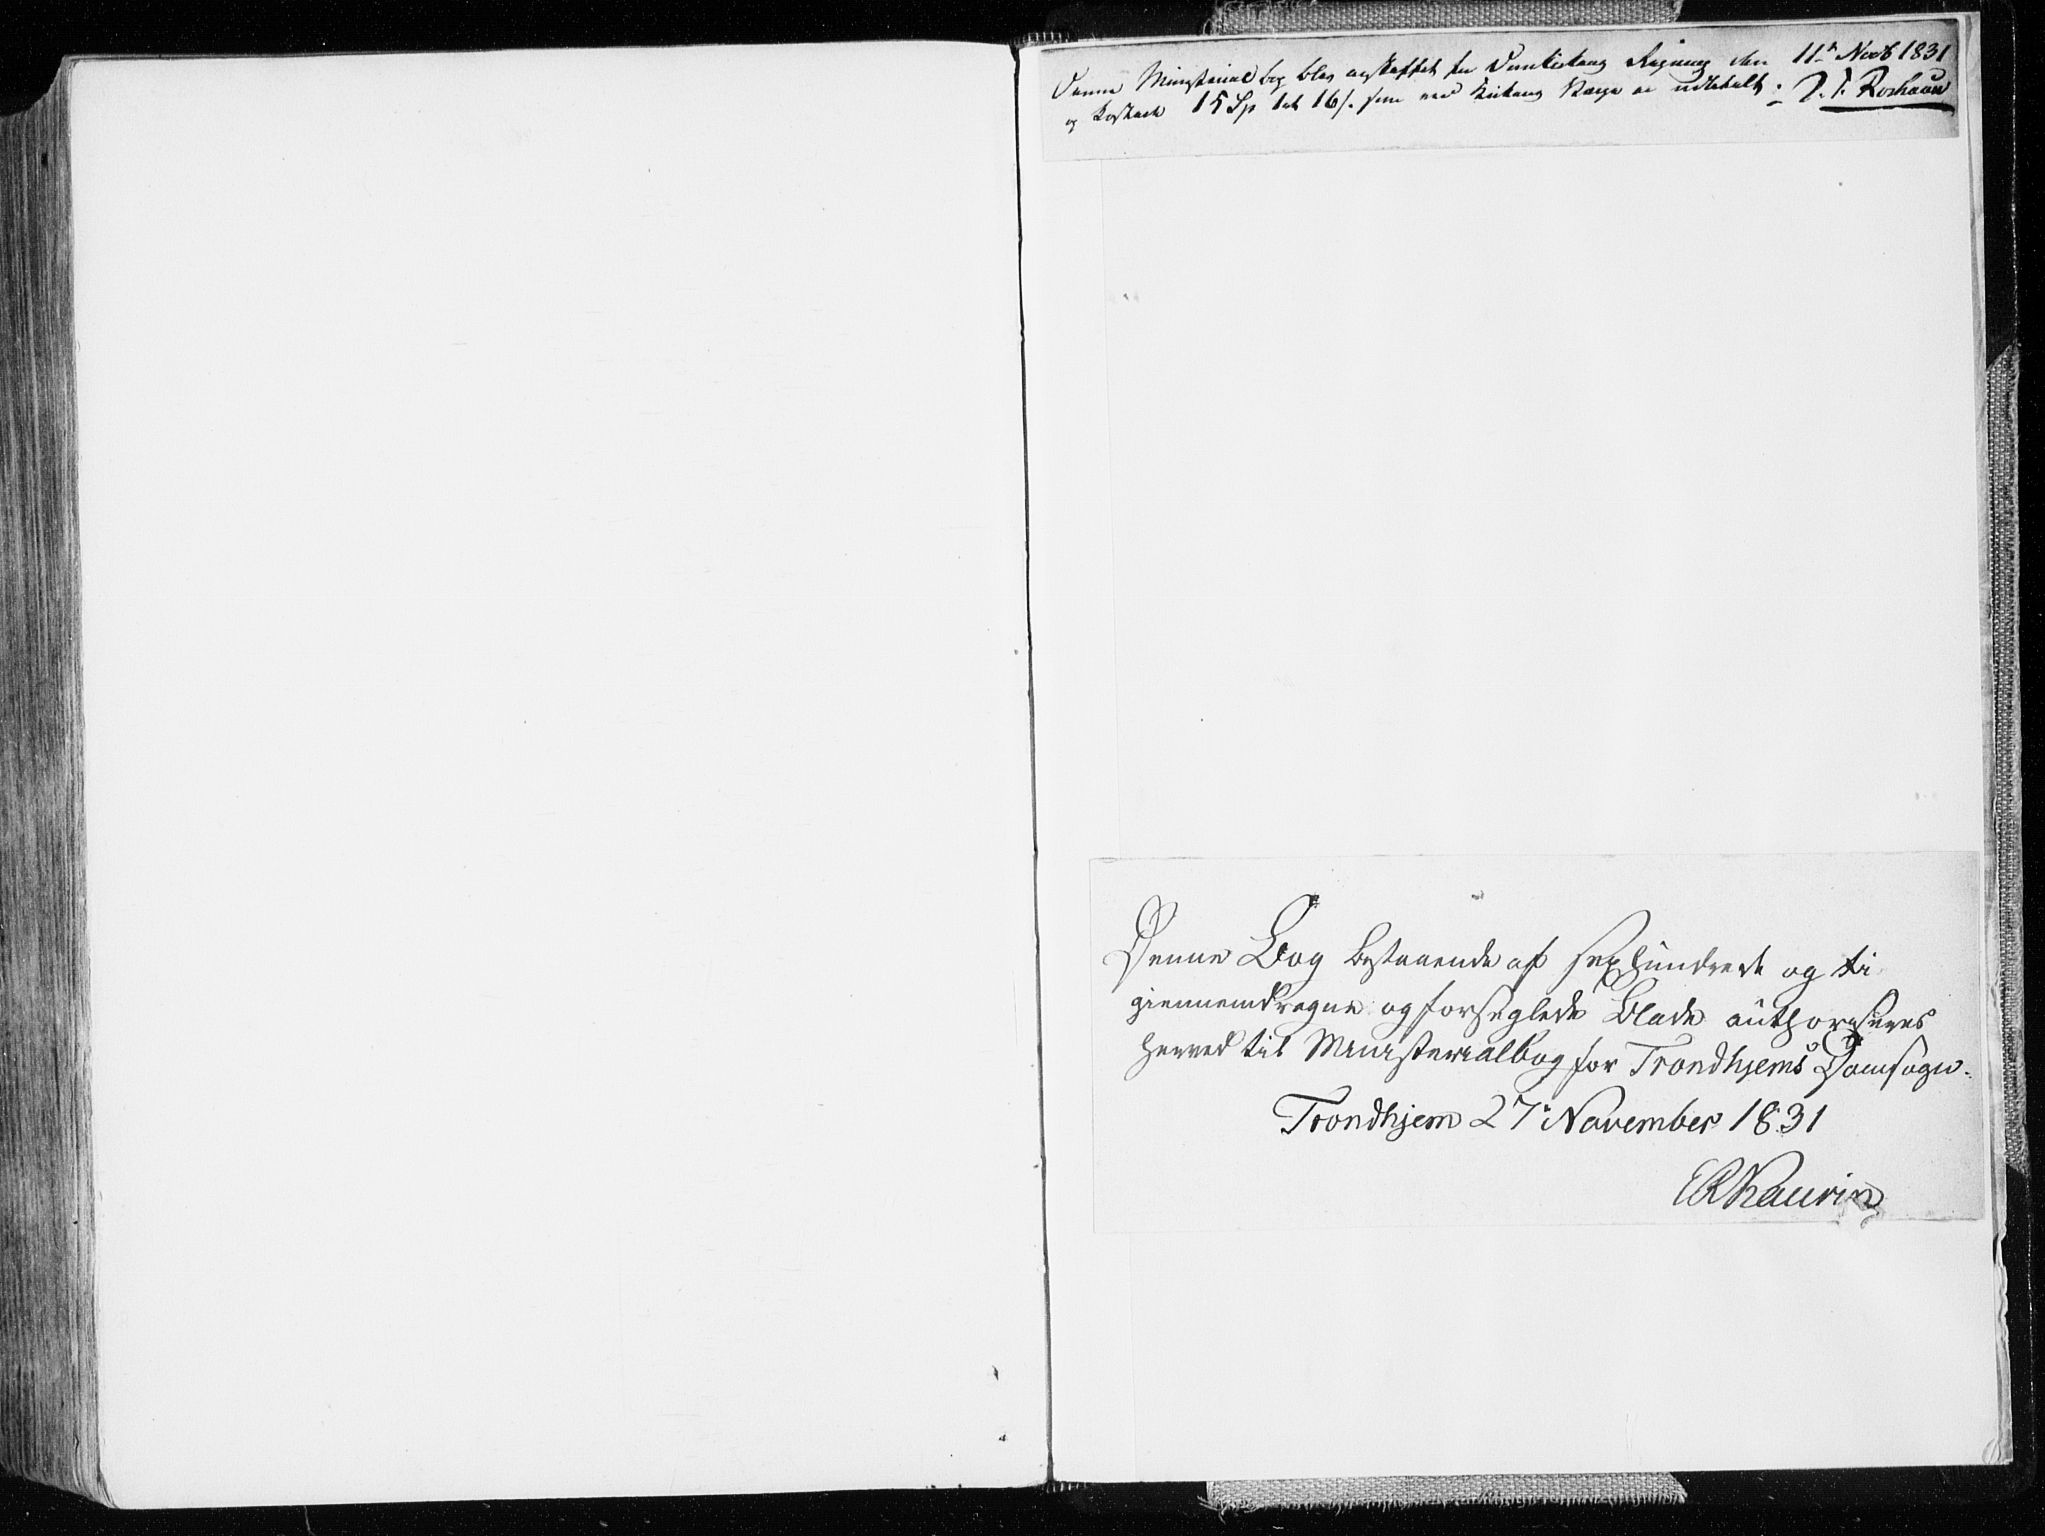 Denne Ministerial bog blev anskaffet for Domkirkens Regning den 11te Novb 1831
og kostede 15 Sp 1 ort 16 s. som ved Kirkens Værge er udbetalt:
Denne Bog bestaaende af sexhundrede og ti
giennemdragne og forseglede Blade authoriseres
herved til Ministerialbog for Trondhjems Domsogn.
Trondhjem 27de November 1831